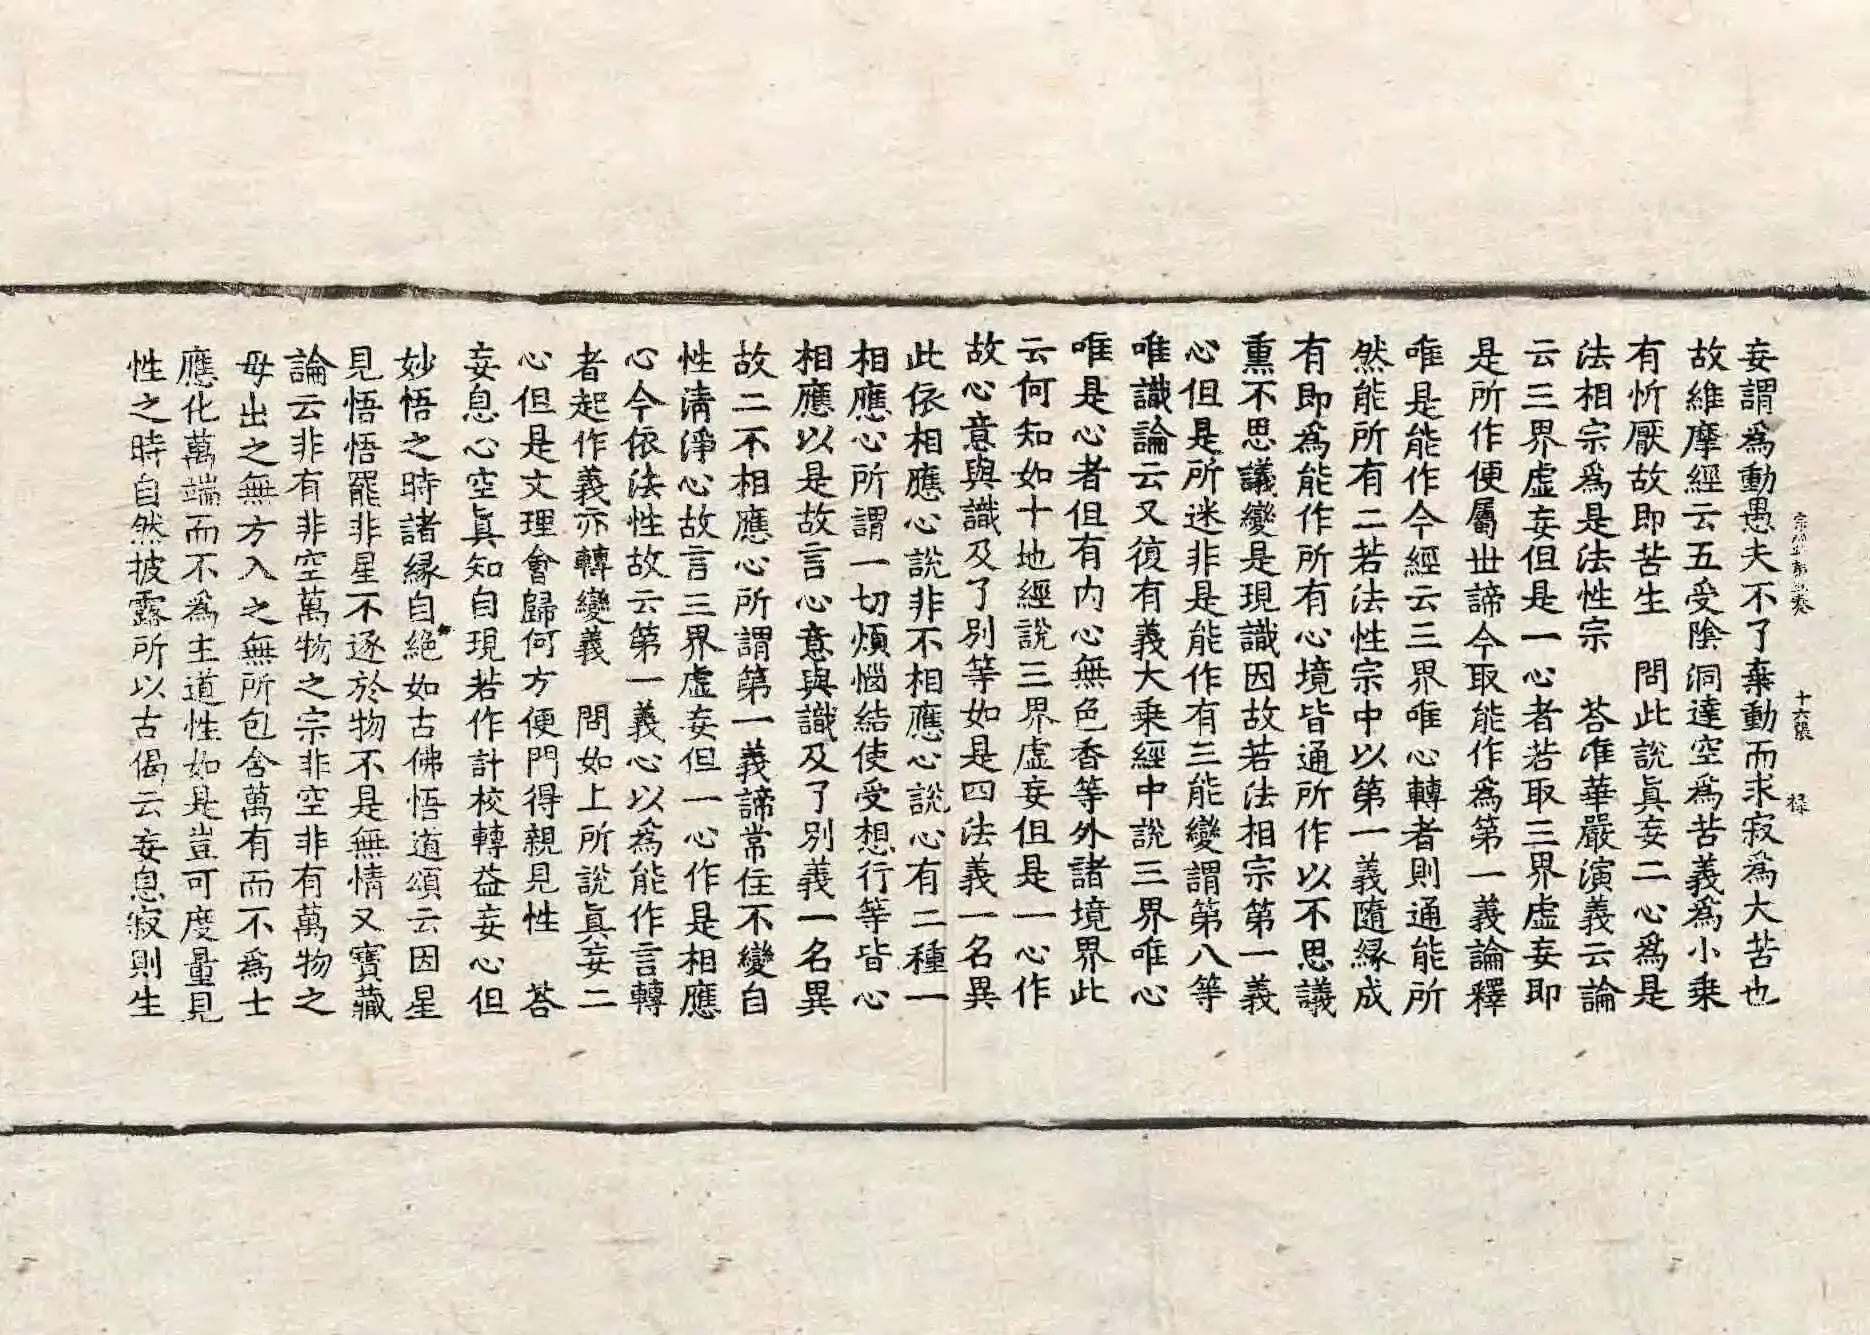 妄謂爲動愚夫不了棄動而求寂爲大苦也
故維摩經云五受陰洞達空爲苦義爲小乗
有忻厭故即苦生　問此說真妄二心爲是
法相宗爲是法性宗　荅唯華嚴演義云論
云三界虛妄但是一心者若取三界虛妄即
是所作便屬世諦今取能作爲第一義論釋
唯是能作今經云三界唯心轉者則通能所
然能所有二若法性宗中以第一義隨縁成
有即爲能作所有心境皆通所作以不思議
熏不思議變是現識因故若法相宗第一義
心但是所迷非是能作有三能變謂第八等
唯識論云又復有義大乗經中說三界唯心
唯是心者但有内心無色香等外諸境界此
云何知如十地經說三界虛妄但是一心作
故心意與識及了別等如是四法義一名異
此依相應心說非不相應心說心有二種一
相應心所謂一切煩惱結使受想行等皆心
相應以是故言心意與識及了別義一名異
故二不相應心所謂第一義諦常住不變自
性清淨心故言三界虛妄但一心作是相應
心今依法性故云第一義心以爲能作言轉
者起作義亦轉變義　問如上所說真妄二
心但是文理會歸何方便門得親見性　荅
妄息心空真知自現若作計校轉益妄心但
妙悟之時諸縁自絶如古佛悟道頌云因星
見悟悟罷非星不逐於物不是無情又寶藏
論云非有非空萬物之宗非空非有萬物之
母出之無方入之無所包含萬有而不爲士
應化萬端而不爲主道性如是豈可度量見
性之時自然披露所以古偈云妄息寂則生
十六張